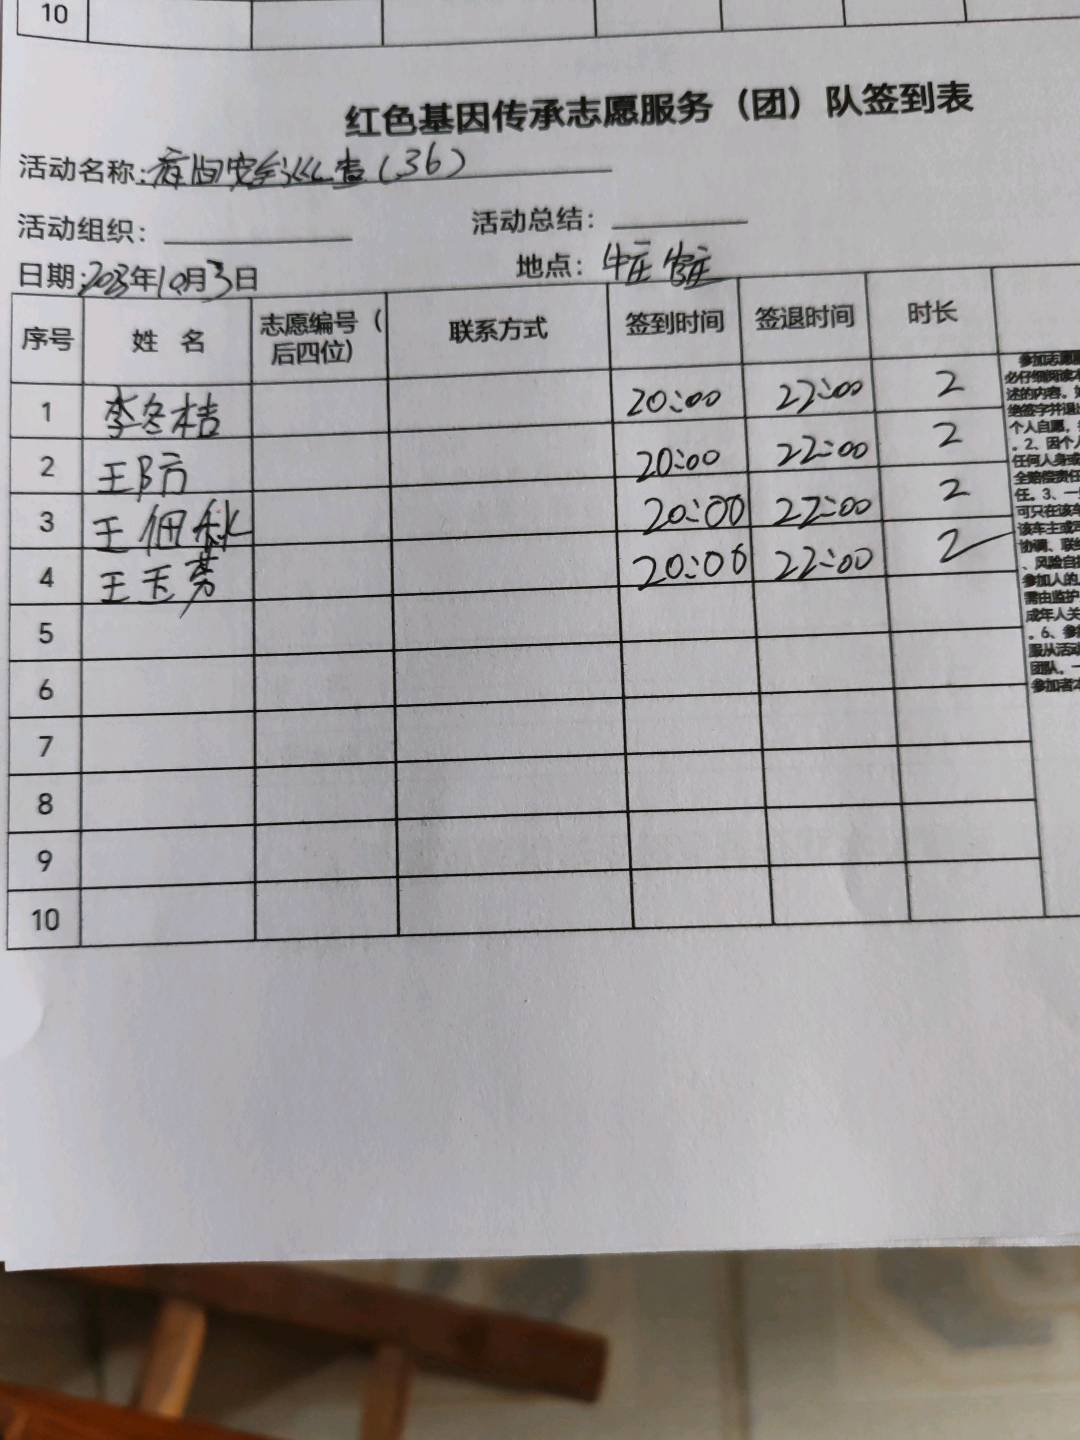 10
红色基因传承志愿服务（团）队签到表
活动名称：夜间安全巡查（36）
活动组织：
活动总结：
日期：2023年10月3日
地点：牛庄
序号 姓 名 志愿编号（后四位） 联系方式 签到时间 签退时间 时长
1 李冬桔 20:00 22:00 2
2 王防 20:00 22:00 2
3 王佃秋 20:00 22:00 2
4 王玉芳 20:00 22:00 2
5
6
7
8
9
10
参加志愿服
必仔细阅读本
述的内容。如
绝签字并退出
个人自愿，
。2、因个人
任何人身或
全赔偿责任
任。3、一
可只在该车
该车主或司
协调、联络
、风险自担
参加人的
需由监护
成年人关
。6、参加
服从活动
团队，一
参加者本